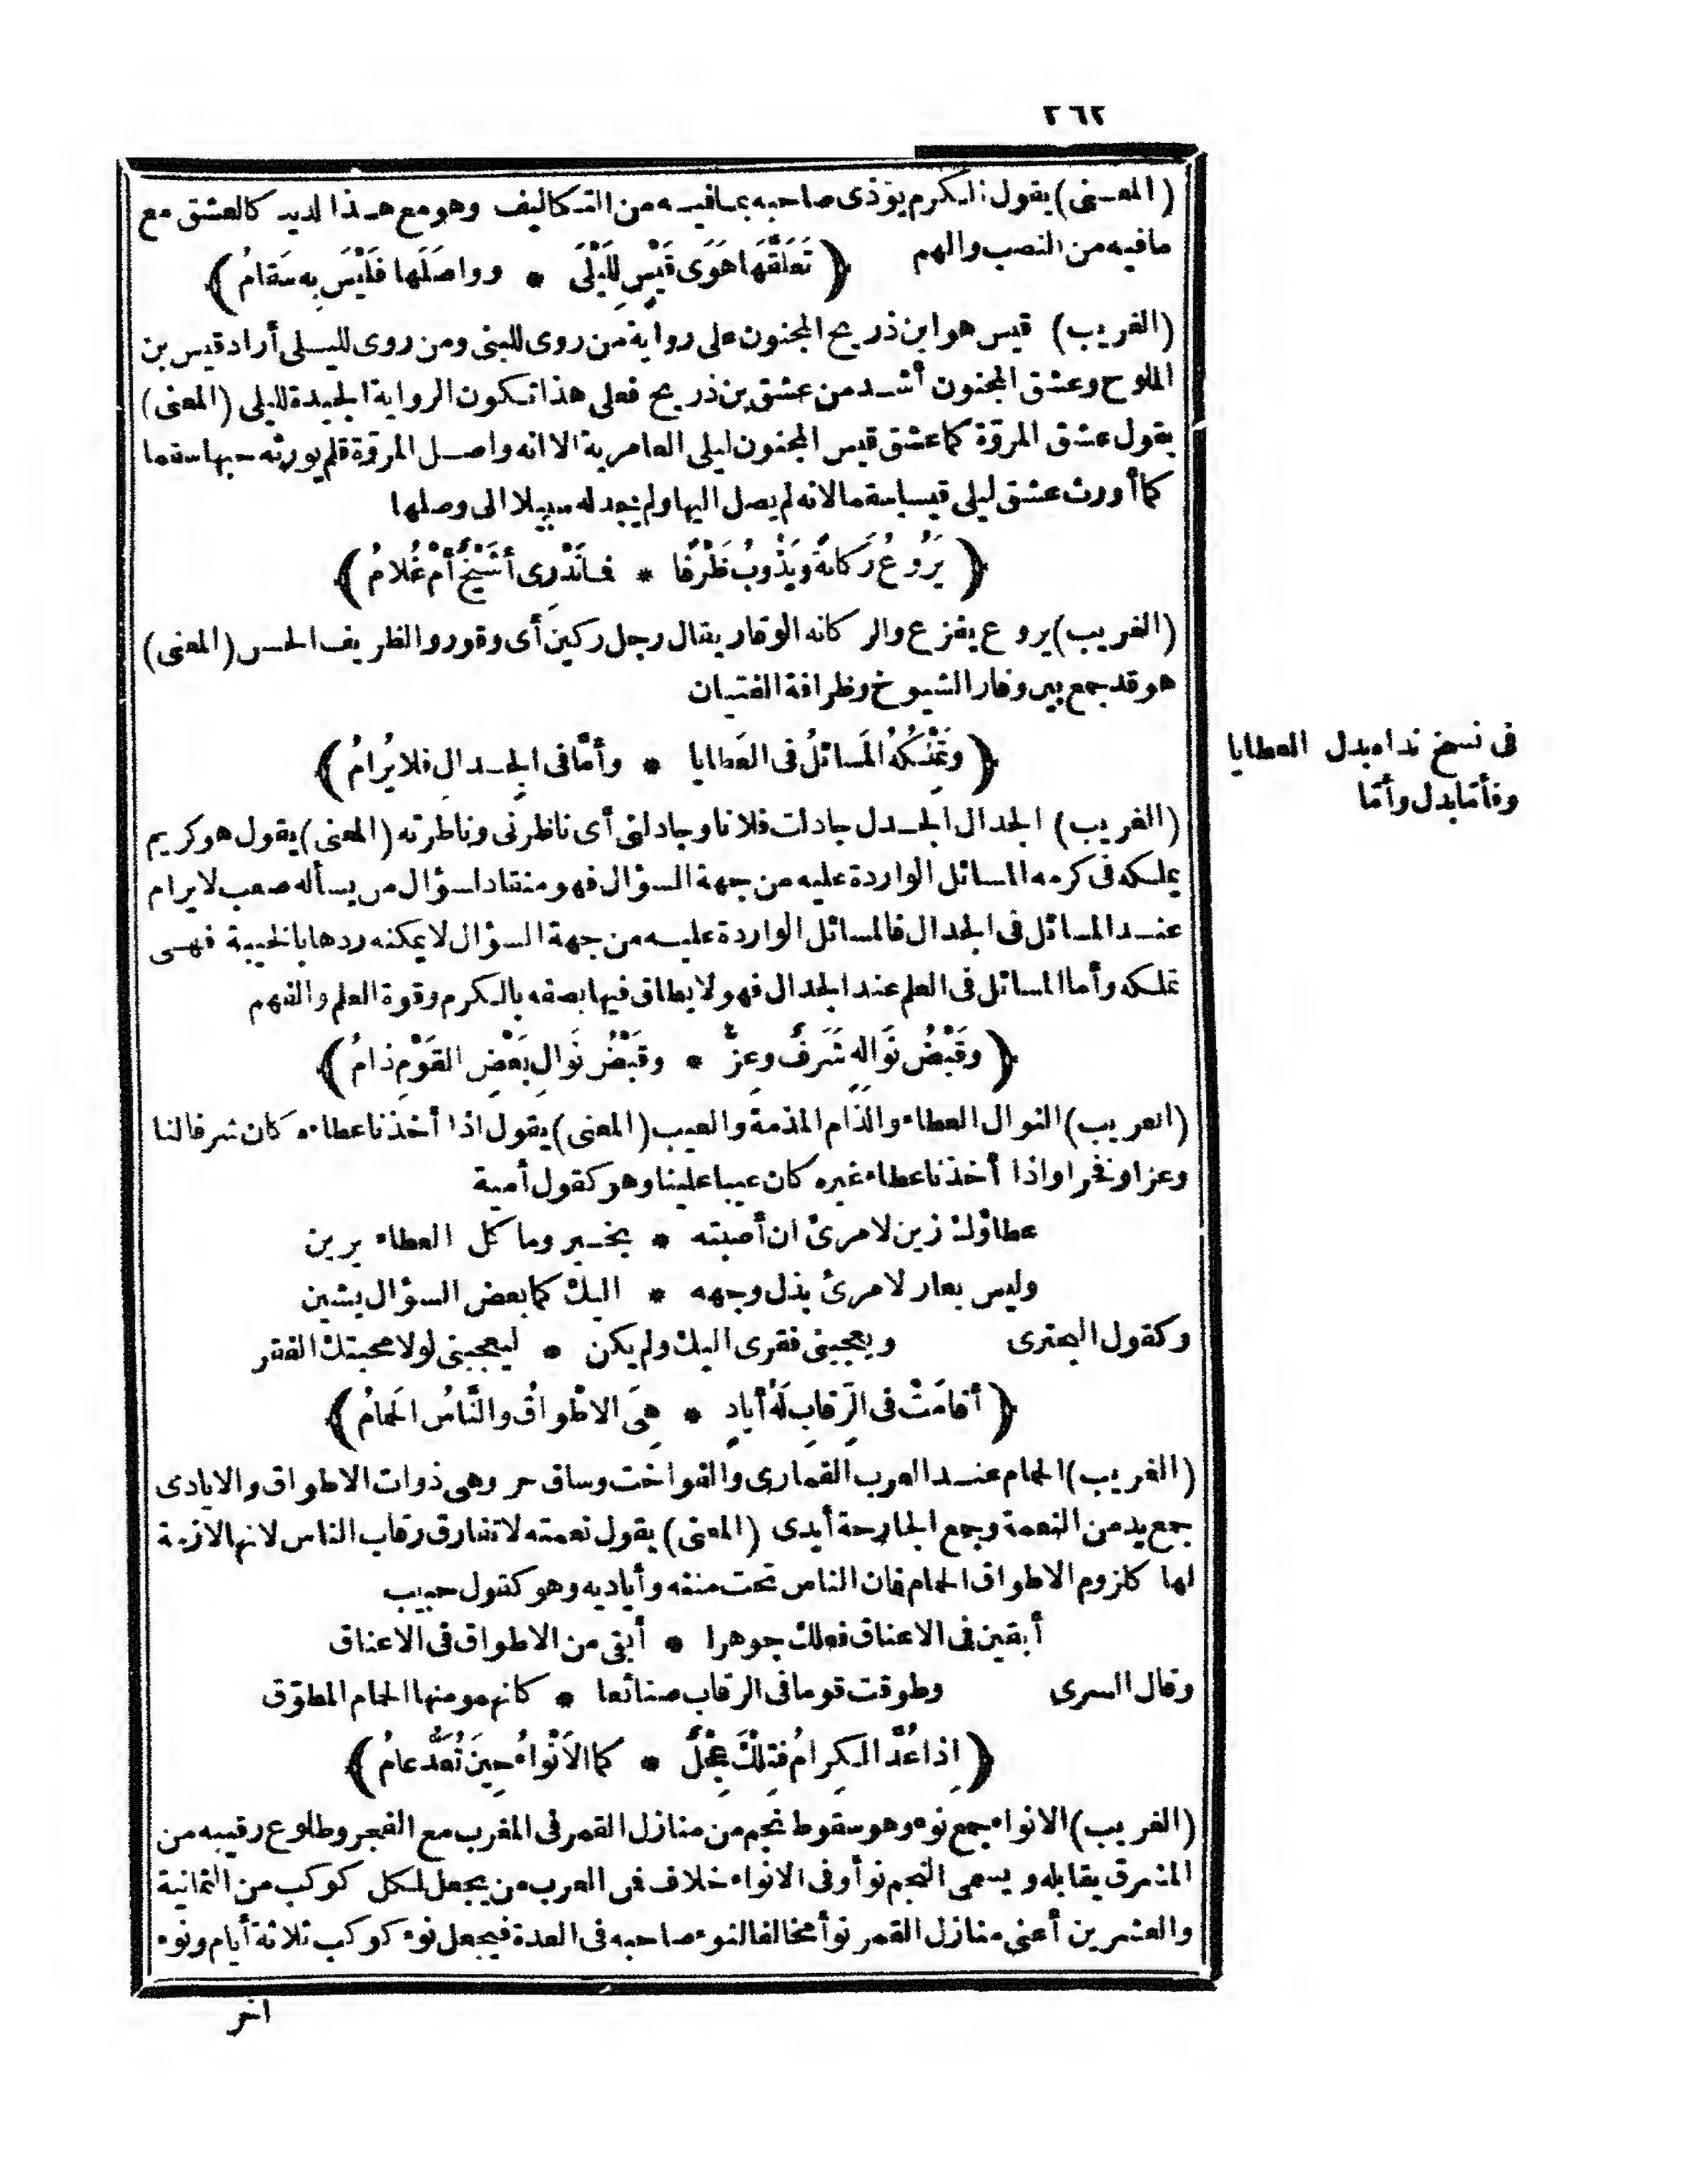 ٣٦٢
(المعنى) يقول الكرم يؤذى صاحبه بما فيه من التكاليف وهو مع هذا لديه كالعشق مع
ما فيه من النصب والهم ﴿ تَعَلَّقَها هَوَى قَيْسٍ لِلَيْلَى * وواصَلَها فَلَيْسَ بِه سَقامُ ﴾
(الغريب) قيس هو ابن ذريح المجنون على رواية من روى للبنى ومن روى لليلى أراد قيس بن
الملوح وعشق المجنون أشد من عشق بن ذريح فعلى هذا تكون الرواية الجيدة لليلى (المعنى)
يقول عشق المروّة كما عشق قيس المجنون ليلى العامرية الا انه واصل المروّة فلم يورثه حبها سقما
كما أورث عشق ليلى قيسا سقما لانه لم يصل اليها ولم يجد له سبيلا الى وصلها
﴿ يَرُوعُ رَكانَةً ويَذُوبُ ظَرْفًا * فما تَدْرِى أَشَيْخٌ أَمْ غُلامُ ﴾
(الغريب) يروع يفزع والركانه الوقار يقال رجل ركين أى وقور والظريف الحسن (المعنى)
هو قد جمع بين وقار الشيوخ وظرافة الفتيان
﴿ وتَمْلِكُهُ المَسائلُ فى العَطايا * وأمّا فى الجِدالِ فلا يُرامُ ﴾
فى نسخ نداه بدل العطايا
وفأمّا بدل وأمّا
(الغريب) الجدال الجدل جادلت فلانا وجادلنى أى ناظرنى وناظرته (المعنى) يقول هو كريم
يملكه فى كرمه المسائل الواردة عليه من جهة السؤال فهو منقاد لسؤال من يسأله صعب لا يرام
عند المسائل فى الجدال فالمسائل الواردة عليه من جهة السؤال لا يمكنه ردها بالخيبة فهى
تملكه وأما المسائل فى العلم عند الجدال فهو لا يطاق فيها يصفه بالكرم وقوة العلم والفهم
﴿ وقَبْضُ نَوَالِهِ شَرَفٌ وعِزٌّ * وقَبْضُ نَوالِ بَعْضِ القَوْمِ ذامُ ﴾
(الغريب) النوال العطاء والذام المذمة والعيب (المعنى) يقول اذا أخذنا عطاءه كان شرفا لنا
وعزا وفخرا واذا أخذنا عطاء غيره كان عيبا علينا وهو كقول أمية
عطاؤك زين لامرئ ان أصبته * بخير وما كل العطاء يزين
وليس بعار لامرئ بذل وجهه * اليك كما بعض السؤال يشين
وكقول البحترى ويعجبنى فقرى اليك ولم يكن * ليعجبنى لولا محبتك الفقر
﴿ أقامَتْ فى الرِّقابِ لَهُ أيادٍ * هِىَ الاَطْواقُ والنَّاسُ الحَمامُ ﴾
(الغريب) الحمام عند العرب القمارى والفواخت وساق حر وهى ذوات الاطواق والايادى
جمع يد من النعمة وجمع الجارحة أيدى (المعنى) يقول نعمته لا تفارق رقاب الناس لانها لازمة
لها كلزوم الاطواق الحمام فان الناس تحت مننه وأياديه وهو كقول حبيب
أبقين فى الاعناق فعلك جوهرا * أبقى من الاطواق فى الاعناق
وقال السرى وطوقت قوما فى الرقاب صنائعا * كانهمو منها الحمام المطوّق
﴿ اِذا عُدَّ الكِرامُ فتِلْكَ عِجْلٌ * كما الاَنْواءُ حِينَ تُعَدُّ عامُ ﴾
(الغريب) الانواء جمع نوء وهو سقوط نجم من منازل القمر فى المغرب مع الفجر وطلوع رقيبه من
المشرق يقابله ويسمى النجم نوأ وفى الانواء خلاف فمن العرب من يجعل لكل كوكب من الثمانية
والعشرين أعنى منازل القمر نوأ مخالفا لنوء صاحبه فى العدة فيجعل نوء كوكب ثلاثة أيام ونوء
آخر